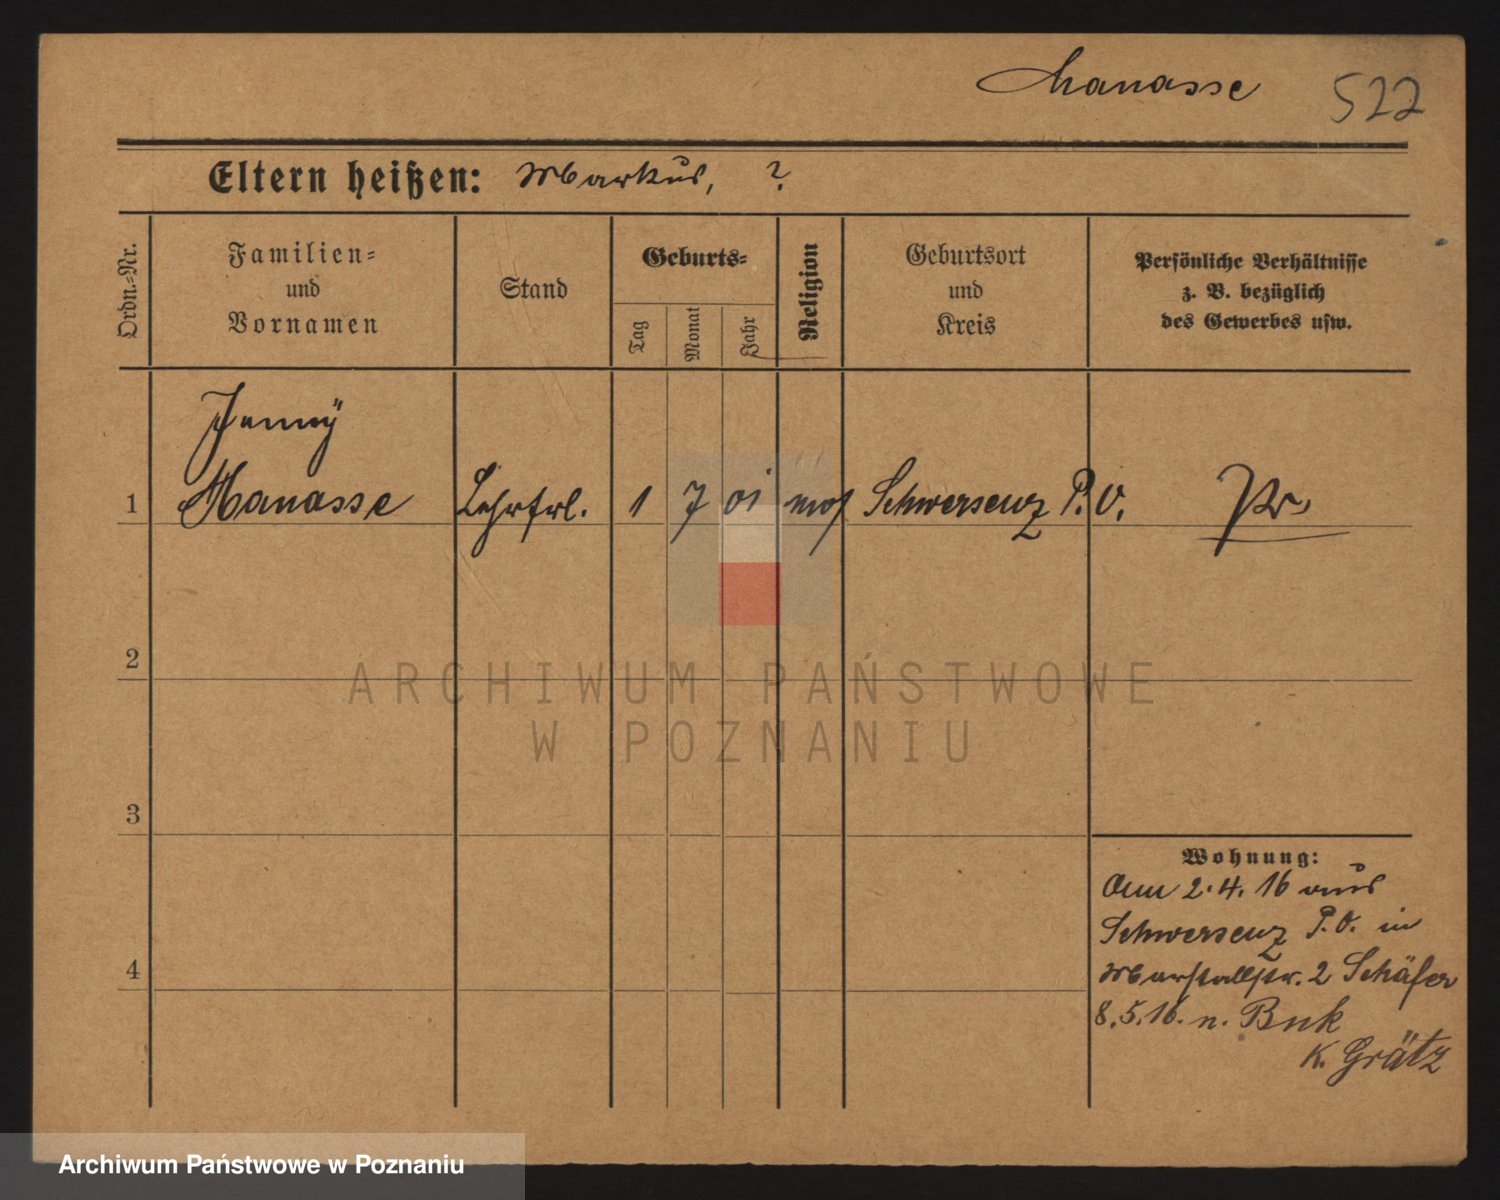 Manasse 522
Eltern heißen: Markus, ?
Ordn.-Nr.
Familien=
und
Vornamen
Stand
Geburts=
Tag
Monat
Jahr
Religion
Geburtsort
und
Kreis
Persönliche Verhältnisse
z. B. bezüglich
des Gewerbes usw.
Jenny
1 Manasse Lehrfrl. 1 7 01 mos Schwersenz P. O. Pr.
2
ARCHIWUM PAŃSTWOWE
W POZNANIU
3
Wohnung:
Am 2.4.16 aus
Schwersenz P.O. in
4
Marstallstr. 2 Schäfer
8.5.16. n. Buk
K. Grätz
Archiwum Państwowe w Poznaniu